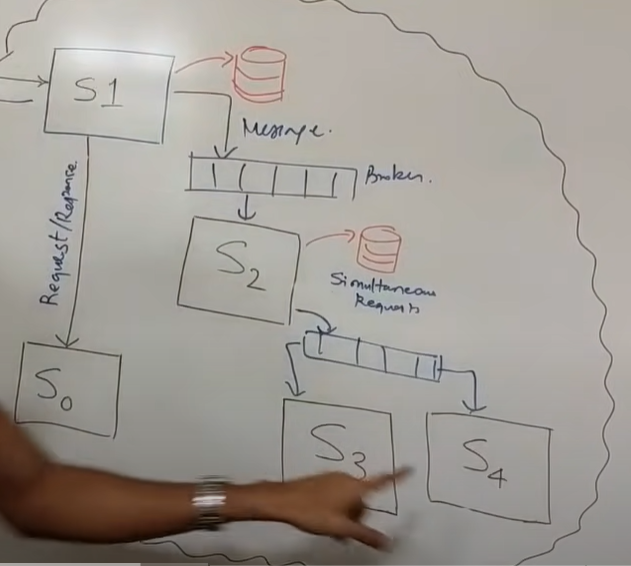 S1
Message.
Broker.
Request/Response
S2
Simultaneous
Requests
S0
S3
S4